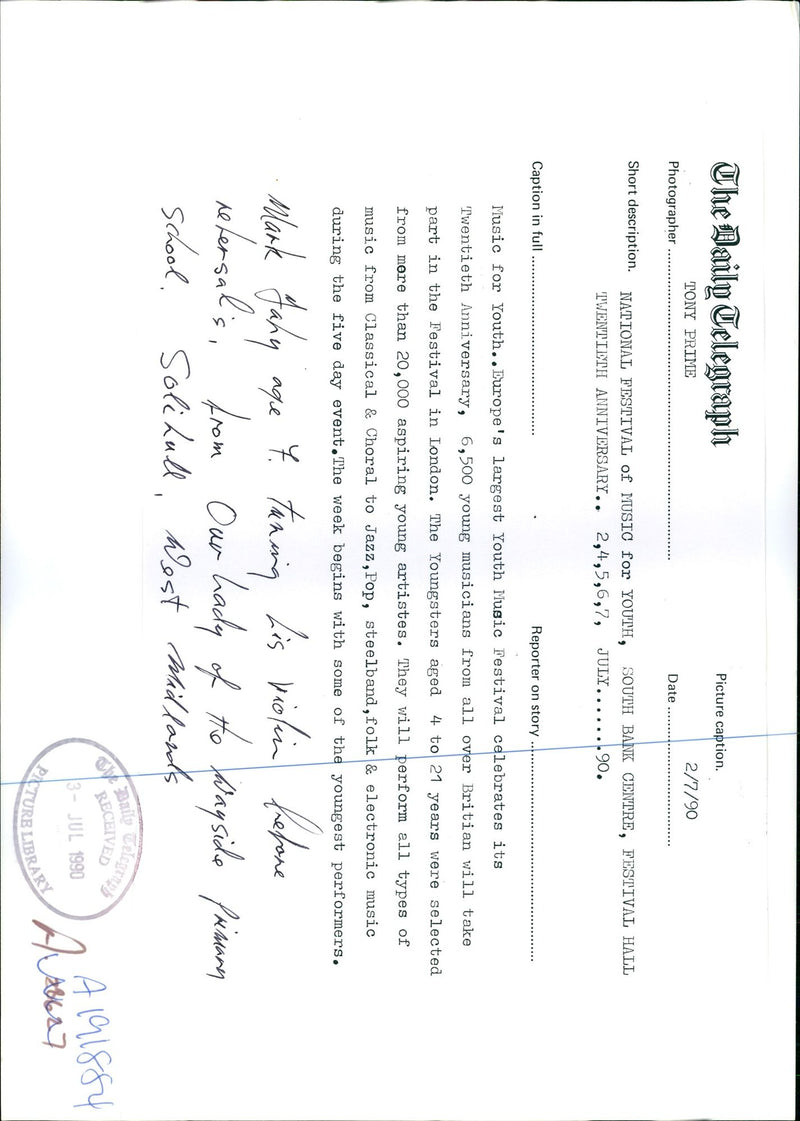 The Daily Telegraph
Picture caption.
Photographer TONY PRIME
Date 2/7/90
Short description. NATIONAL FESTIVAL of MUSIC for YOUTH, SOUTH BANK CENTRE, FESTIVAL HALL
TWENTIETH ANNIVERSARY.. 2,4,5,6,7, JULY.......90.
Caption in full
Reporter on story
Music for Youth..Europe's largest Youth Music Festival celebrates its
Twentieth Anniversary, 6,500 young musicians from all over Britian will take
part in the Festival in London. The Youngsters aged 4 to 21 years were selected
from more than 20,000 aspiring young artistes. They will perform all types of
music from Classical & Choral to Jazz,Pop, steelband,folk & electronic music
during the five day event.The week begins with some of the youngest performers.
Mark age 7. tuning his violin before
rehersal's, from Our Lady of the Wayside Primary
School, Solihull, West Midlands
The Daily Telegraph
RECEIVED
3 - JUL 1990
PICTURE LIBRARY
A191884